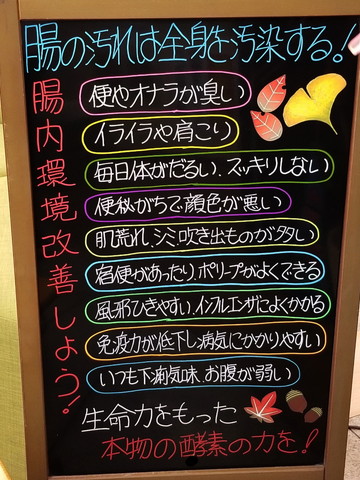 腸の汚れは全身を汚染する!
腸内環境改善しよう!
便やオナラが臭い
イライラや肩こり
毎日体がだるい、スッキリしない
便秘がちで顔色が悪い
肌荒れ、シミ、吹き出ものが多い
宿便があったり、ポリープがよくできる
風邪ひきやすい、インフルエンザによくかかる
免疫力が低下し病気にかかりやすい
いつも下痢気味、お腹が弱い
生命力をもった
本物の酵素の力を!